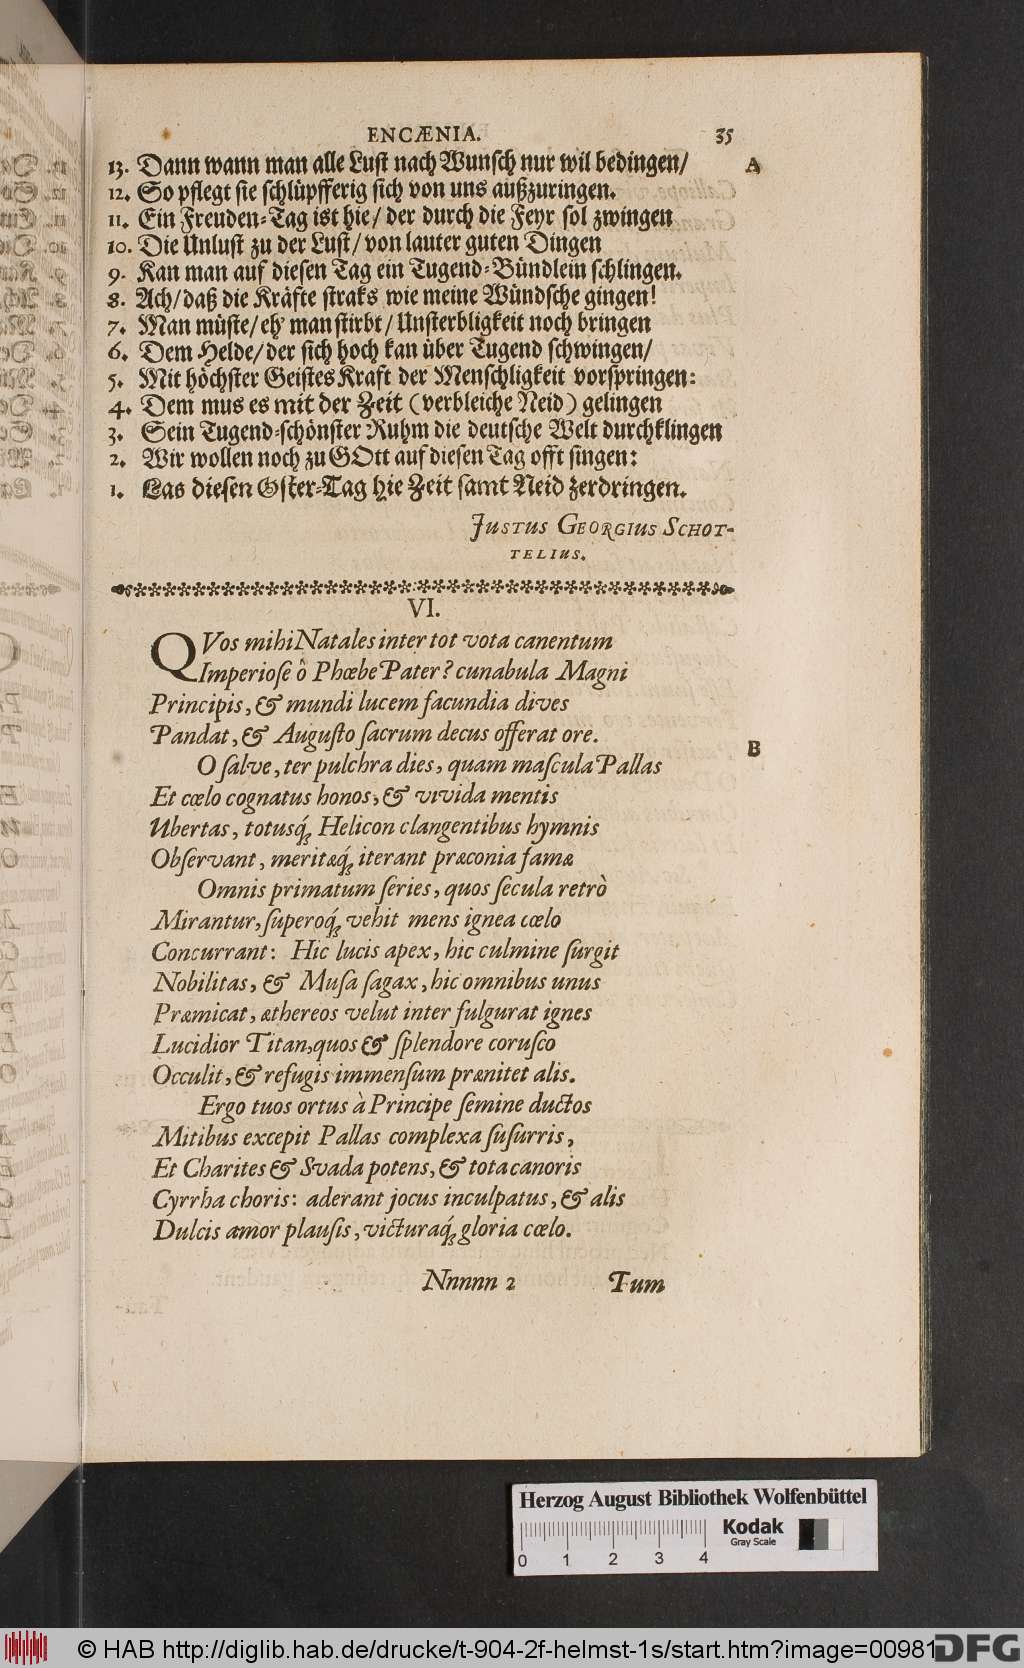 ENCÆNIA. 35
13. Dann wann man alle Lust nach Wunsch nur wil bedingen/ A
12. So pflegt sie schlüpfferig sich von uns außzuringen.
11. Ein Freuden-Tag ist hie/ der durch die Feyr sol zwingen
10. Die Unlust zu der Lust/ von lauter guten Dingen
9. Kan man auf diesen Tag ein Tugend-Bündlein schlingen.
8. Ach/ daß die Kräfte straks wie meine Wündsche gingen!
7. Man müste/ eh' man stirbt/ Unsterbligkeit noch bringen
6. Dem Helde/ der sich hoch kan über Tugend schwingen/
5. Mit höchster Geistes Kraft der Menschligkeit vorspringen:
4. Dem mus es mit der Zeit (verbleiche Neid) gelingen
3. Sein Tugend-schönster Ruhm die deutsche Welt durchklingen
2. Wir wollen noch zu GOtt auf diesen Tag offt singen:
1. Las diesen Oster-Tag hie Zeit samt Neid zerdringen.
JUSTUS GEORGIUS SCHOT-
TELIUS.
VI.
QVos mihi Natales inter tot vota canentum
Imperiose ô Phœbe Pater? cunabula Magni
Principis, & mundi lucem facundia dives
Pandat, & Augusto sacrum decus offerat ore.
O salve, ter pulchra dies, quam mascula Pallas B
Et cœlo cognatus honos, & vivida mentis
Ubertas, totusq́; Helicon clangentibus hymnis
Observant, meritæq́; iterant præconia famæ
Omnis primatum series, quos secula retrò
Mirantur, superoq́; vehit mens ignea cœlo
Concurrant: Hic lucis apex, hic culmine surgit
Nobilitas, & Musa sagax, hic omnibus unus
Præmicat, æthereos velut inter fulgurat ignes
Lucidior Titan, quos & splendore corusco
Occulit, & refugis immensum prænitet alis.
Ergo tuos ortus à Principe semine ductos
Mitibus excepit Pallas complexa susurris,
Et Charites & Svada potens, & tota canoris
Cyrrha choris: aderant jocus inculpatus, & alis
Dulcis amor plausis, victuraq́; gloria cœlo.
Nnnnn 2 Tum
Herzog August Bibliothek Wolfenbüttel
0 1 2 3 4
Kodak
Gray Scale
© HAB http://diglib.hab.de/drucke/t-904-2f-helmst-1s/start.htm?image=00981
DFG